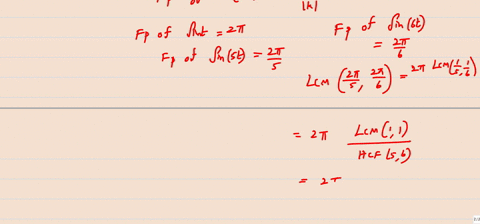 |k|
Fp of Sint = 2π
Fp of Sin(5t) = 2π/5
Fp of Sin(6t)
= 2π/6
LCM (2π/5, 2π/6) = 2π LCM(1/5, 1/6)
= 2π LCM(1,1)/HCF(5,6)
= 2π